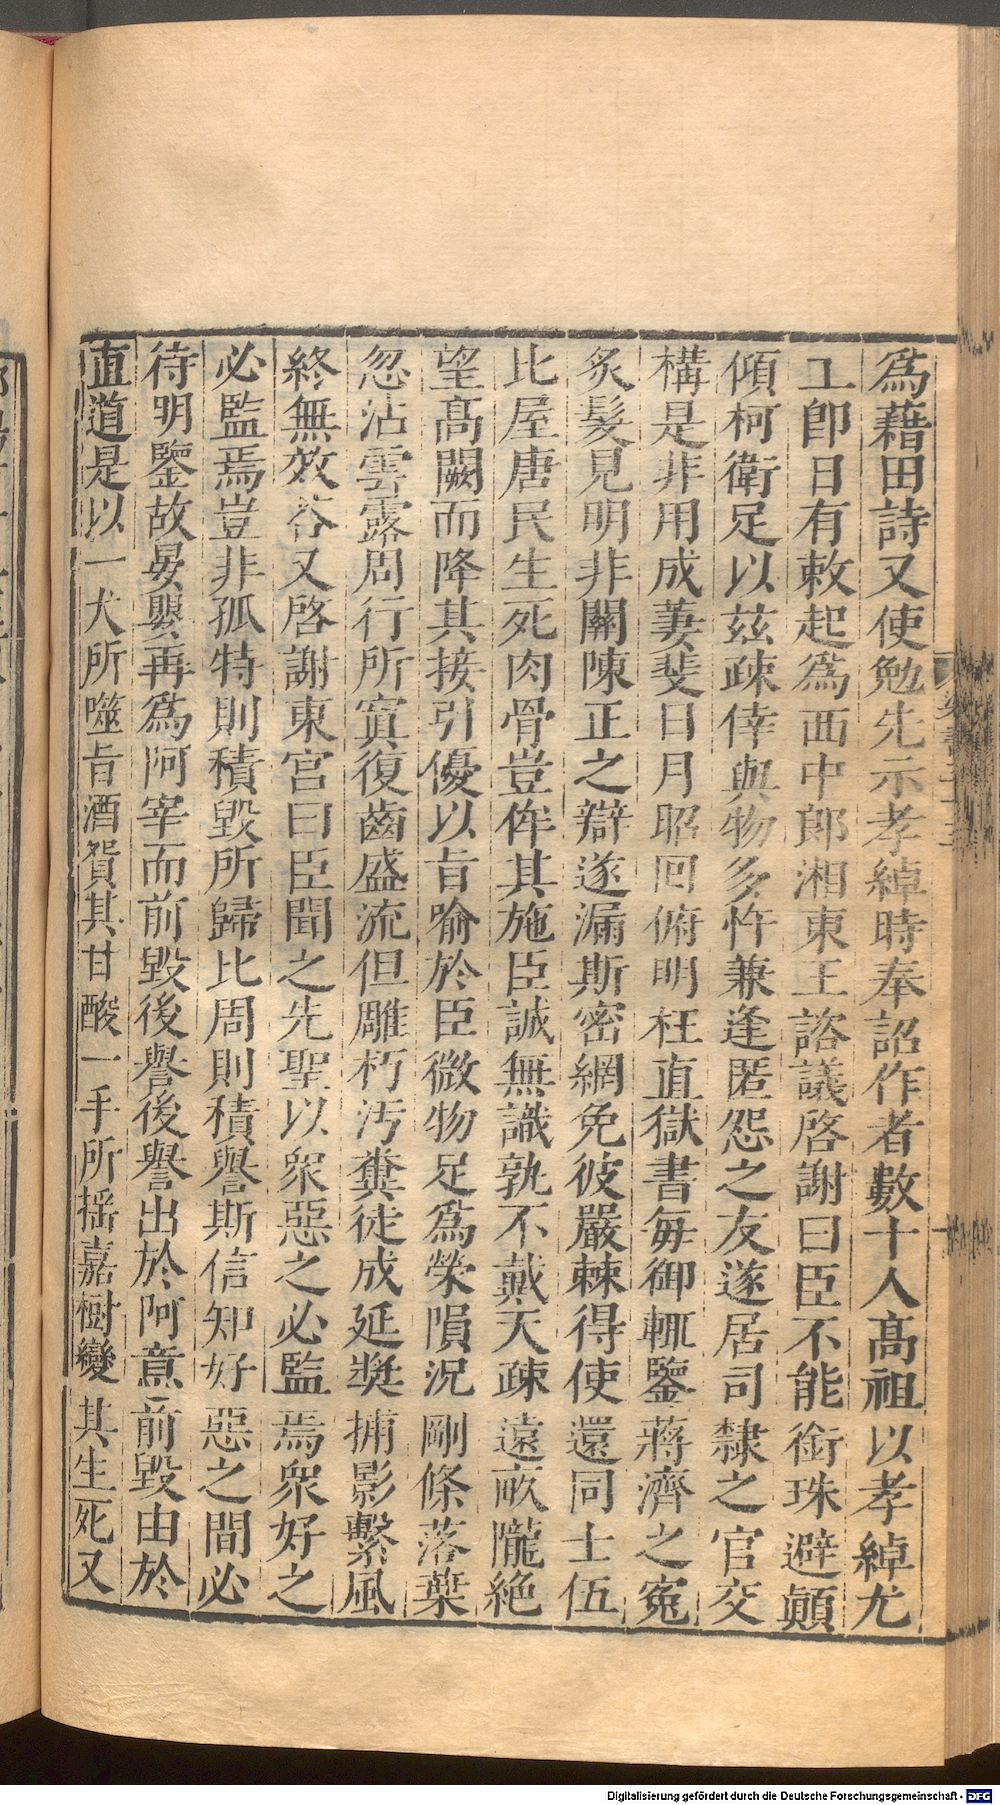 為藉田詩又使勉先示孝綽時奉詔作者數十人高祖以孝綽尤
工即日有敕起為西中郎湘東王諮議啓謝曰臣不能銜珠避顛
傾柯衛足以茲疎倖與物多忤兼逢匿怨之友遂居司隸之官交
構是非用成萋斐日月昭回俯明枉直獄書每御輒鑒蔣濟之寃
炙髮見明非關陳正之辯遂漏斯密網免彼嚴棘得使還同士伍
比屋唐民生死肉骨豈侔其施臣誠無識孰不戴天疎遠畝隴絶
望高闕而降其接引優以旨喻於臣微物足為榮隕況剛條落葉
忽沾雲露周行所寘復齒盛流但雕朽汚糞徒成延奬捕影繫風
終無效荅又啓謝東宮曰臣聞之先聖以衆惡之必監焉衆好之
必監焉豈非孤特則積毀所歸比周則積譽斯信知好惡之間必
待明鑒故晏嬰再為阿宰而前毀後譽後譽出於阿意前毀由於
直道是以一犬所噬旨酒貿其甘酸一手所搖嘉樹變其生死又
Digitalisierung gefördert durch die Deutsche Forschungsgemeinschaft - DFG